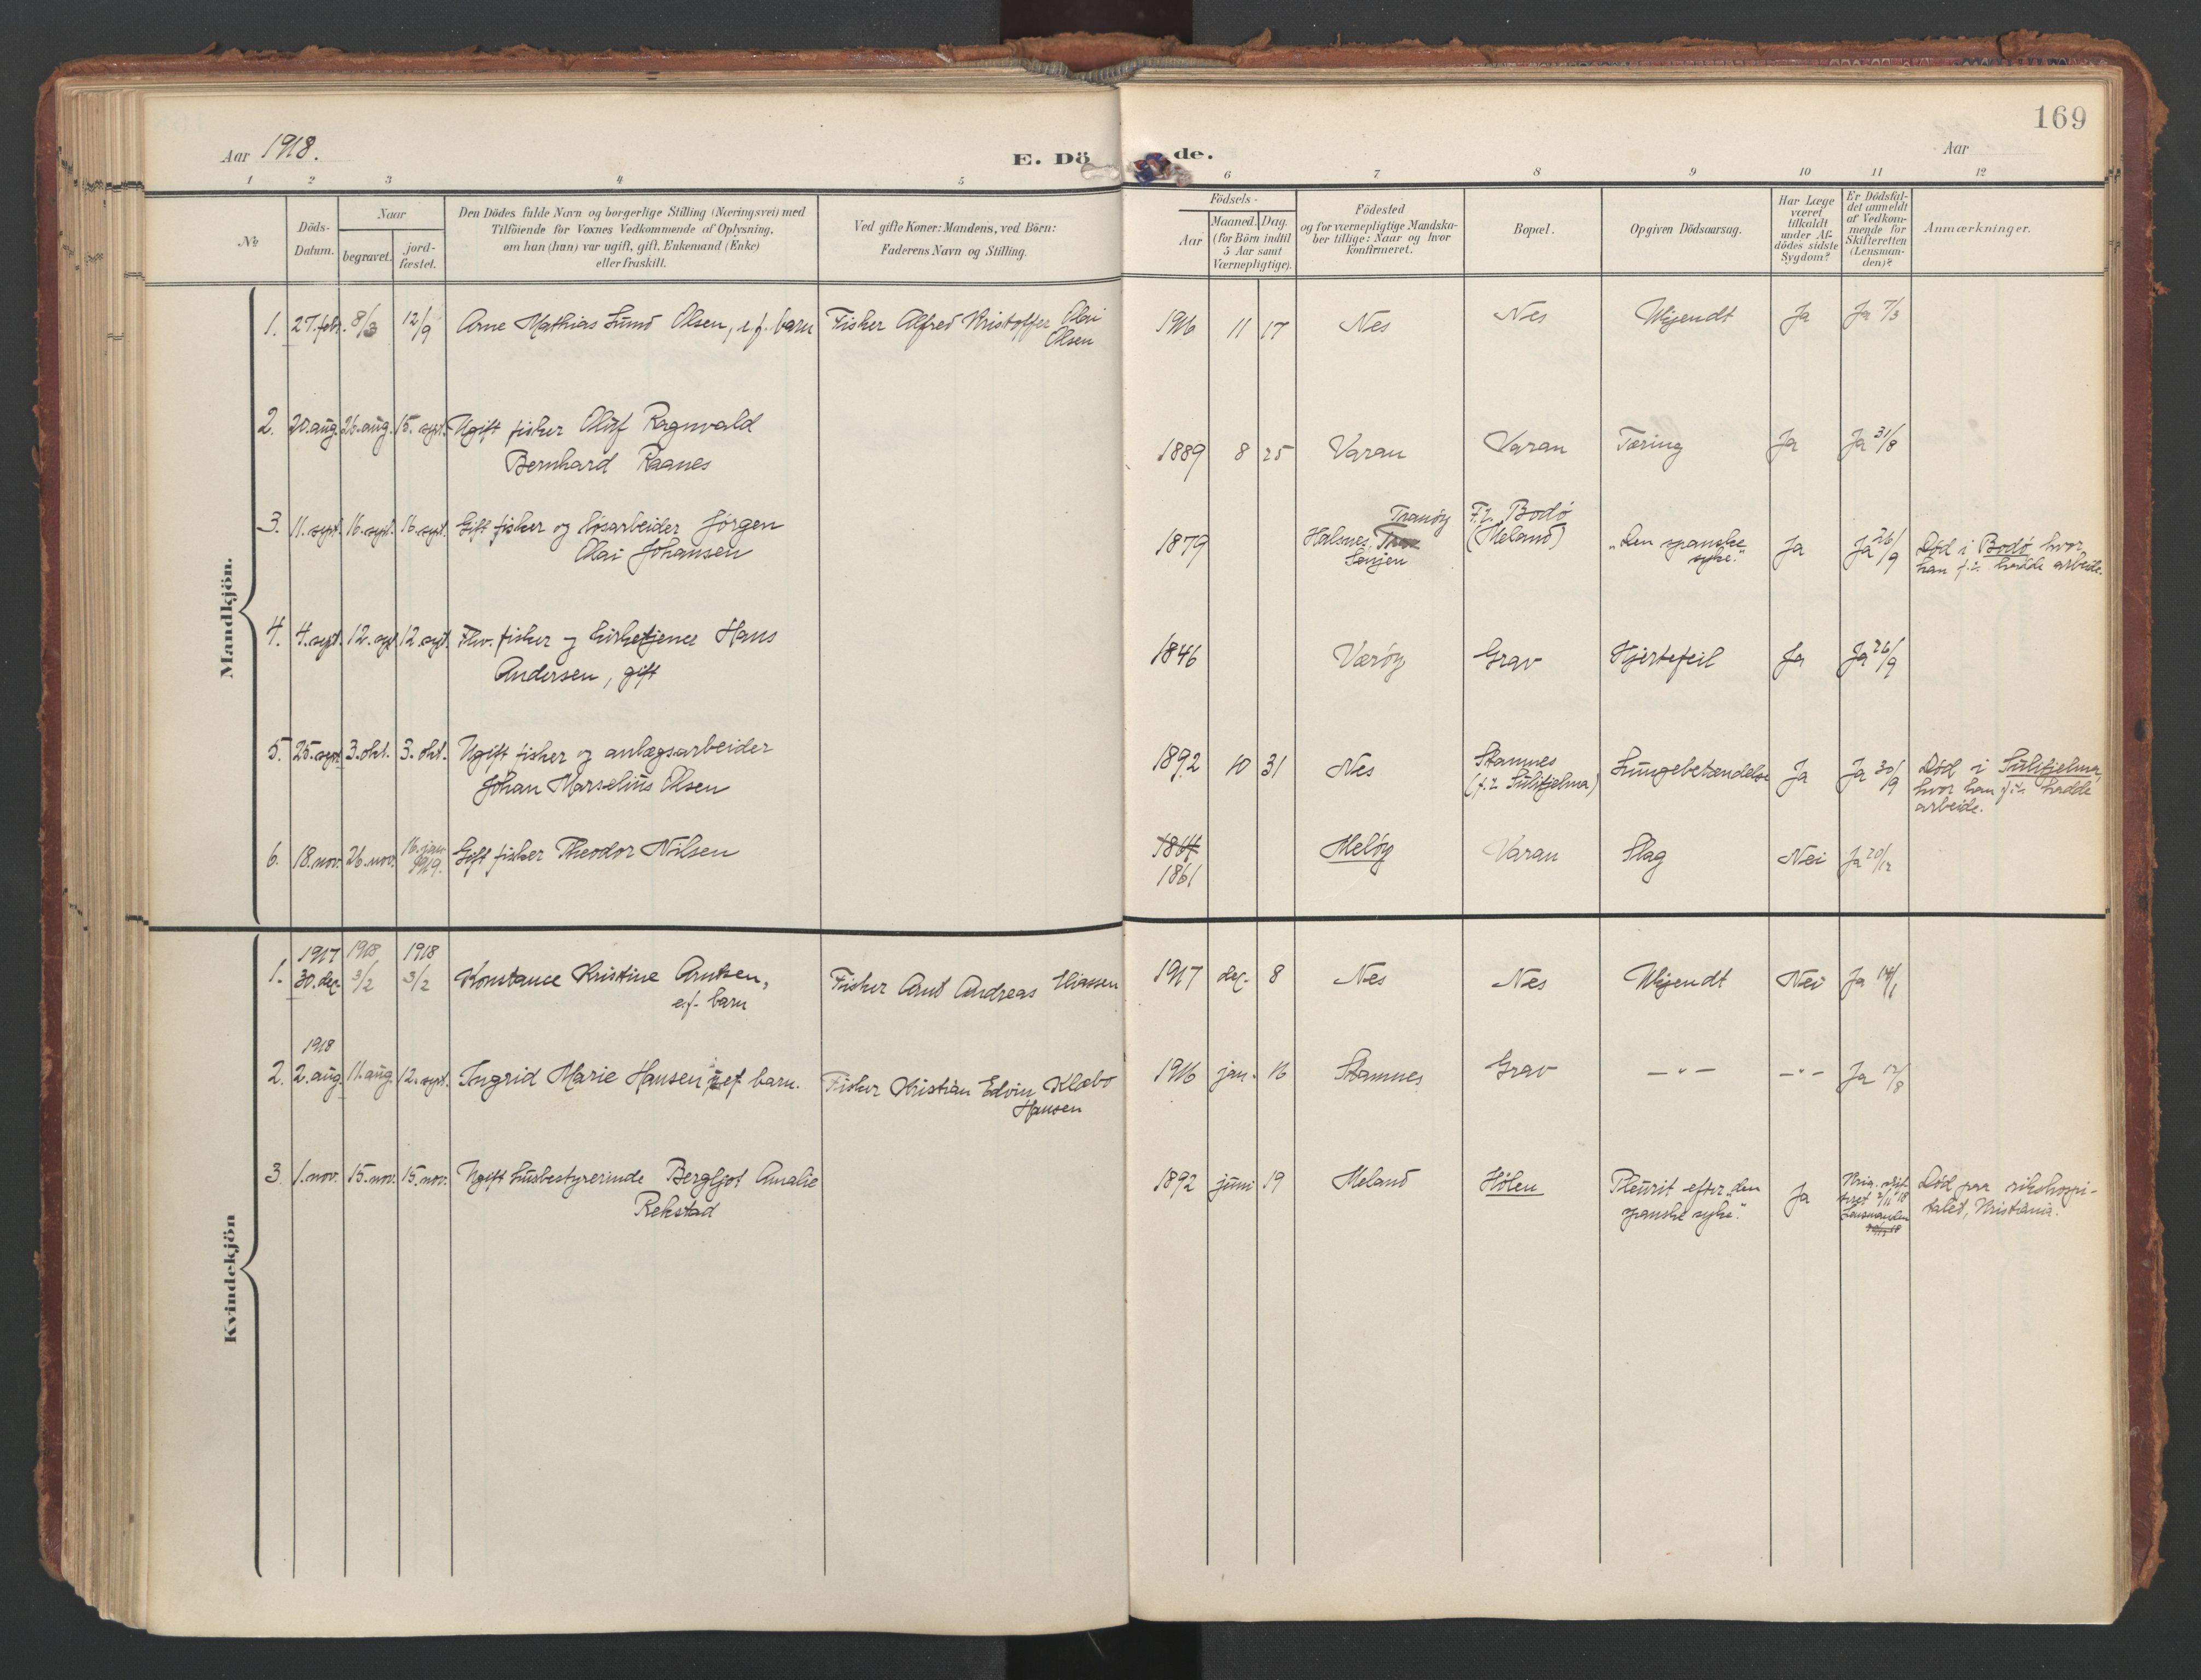 169
Aar 1918.
E. Dö de.
Aar
1 2 3 4 5 6 7 8 9 10 11 12
№
Döds-
Datum.
Naar
begravet.
jord-
fæstet.
Den Dödes fulde Navn og borgerlige Stilling (Næringsvei) med
Tilföiende for Voxnes Vedkommende af Oplysning,
om han (hun) var ugift, gift, Enkemand (Enke)
eller fraskilt.
Ved gifte Koner: Mandens, ved Börn:
Faderens Navn og Stilling.
Födsels-
Aar
Maaned. Dag.
(for Börn indtil
5 Aar samt
Værnepligtige).
Födested
og for værnepligtige Mandska-
ber tillige: Naar og hvor
konfirmeret.
Bopæl.
Opgiven Dödsaarsag.
Har Læge
været
tilkaldt
under Af-
dödes sidste
Sygdom?
Er Dödsfal-
det anmeldt
af Vedkom-
mende for
Skifteretten
(Lensman-
den)?
Anmærkninger.
Mandkjön.
1. 27. febr. 8/3 12/9 Arne Mathias Lund Olsen, e.f. barn Fisker Alfred Kristoffer Olai
Olsen
1916 11 17 Nes Nes Ukjendt Ja Ja 7/3
2. 20. aug. 26. aug. 15. sept. Ugift fisker Oluf Ragnvald
Bernhard Raanes
1889 8 25 Varan Varan Tæring Ja Ja 31/8
3. 11. sept. 16. sept. 16. sept. Gift fisker og løsarbeider Jørgen
Olai Johansen
1879 Halsnes, Tranøy
Senjen
F.t. Bodø
(Meland)
"Den spanske
syke."
Ja Ja 26/9
Død i Bodø hvor
han f.t. hadde arbeide.
4. 4. sept. 12. sept. 12. sept. Fhv. fisker og kirketjener Hans
Andersen, gift
1846 Værøy Grav Hjertefeil Ja Ja 26/9
5. 25. sept. 3. okt. 3. okt. Ugift fisker og anlægsarbeider
Johan Marselius Olsen
1892 10 31 Nes Stamnes
(f.t. Sulitjelma)
Lungebetændelse Ja Ja 30/9
Død i Sulitjelma,
hvor han f.t. hadde
arbeide.
6. 18. nov. 26. nov. 16. jan.
1919. Gift fisker Theodor Nilsen
1861 Meløy Varan Slag Nei Ja 20/12
Kvindekjön
1917 1918 1918
1. 30. dec. 3/2 3/2 Konstance Kristine Arntsen,
e.f. barn
Fisker Arnt Andreas Eliassen
1917 dec. 8 Nes Nes Ukjendt Nei Ja 14/1
1918
2. 2. aug. 11. aug. 12. sept. Ingrid Marie Hansen, e.f barn. Fisker Kristian Edvin Klæbo
Hansen
1916 jan. 16 Stamnes Grav —"— —"— Ja 12/8
3. 1. nov. 15. nov. 15. nov. Ugift husbestyrerinde Bergljot Amalie
Rekstad
1892 juni 19 Meland Hölen Pleurit efter "den
spanske syke".
Ja
Kria. skif-
teret 2/11 18
Lensmanden
Død paa rikshospi-
talet, Kristiania.